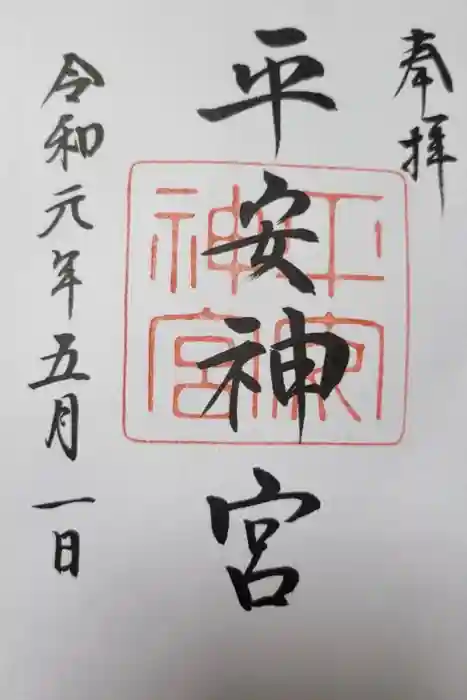 奉拝
平安神宮
平安
神宮
令和元年五月一日